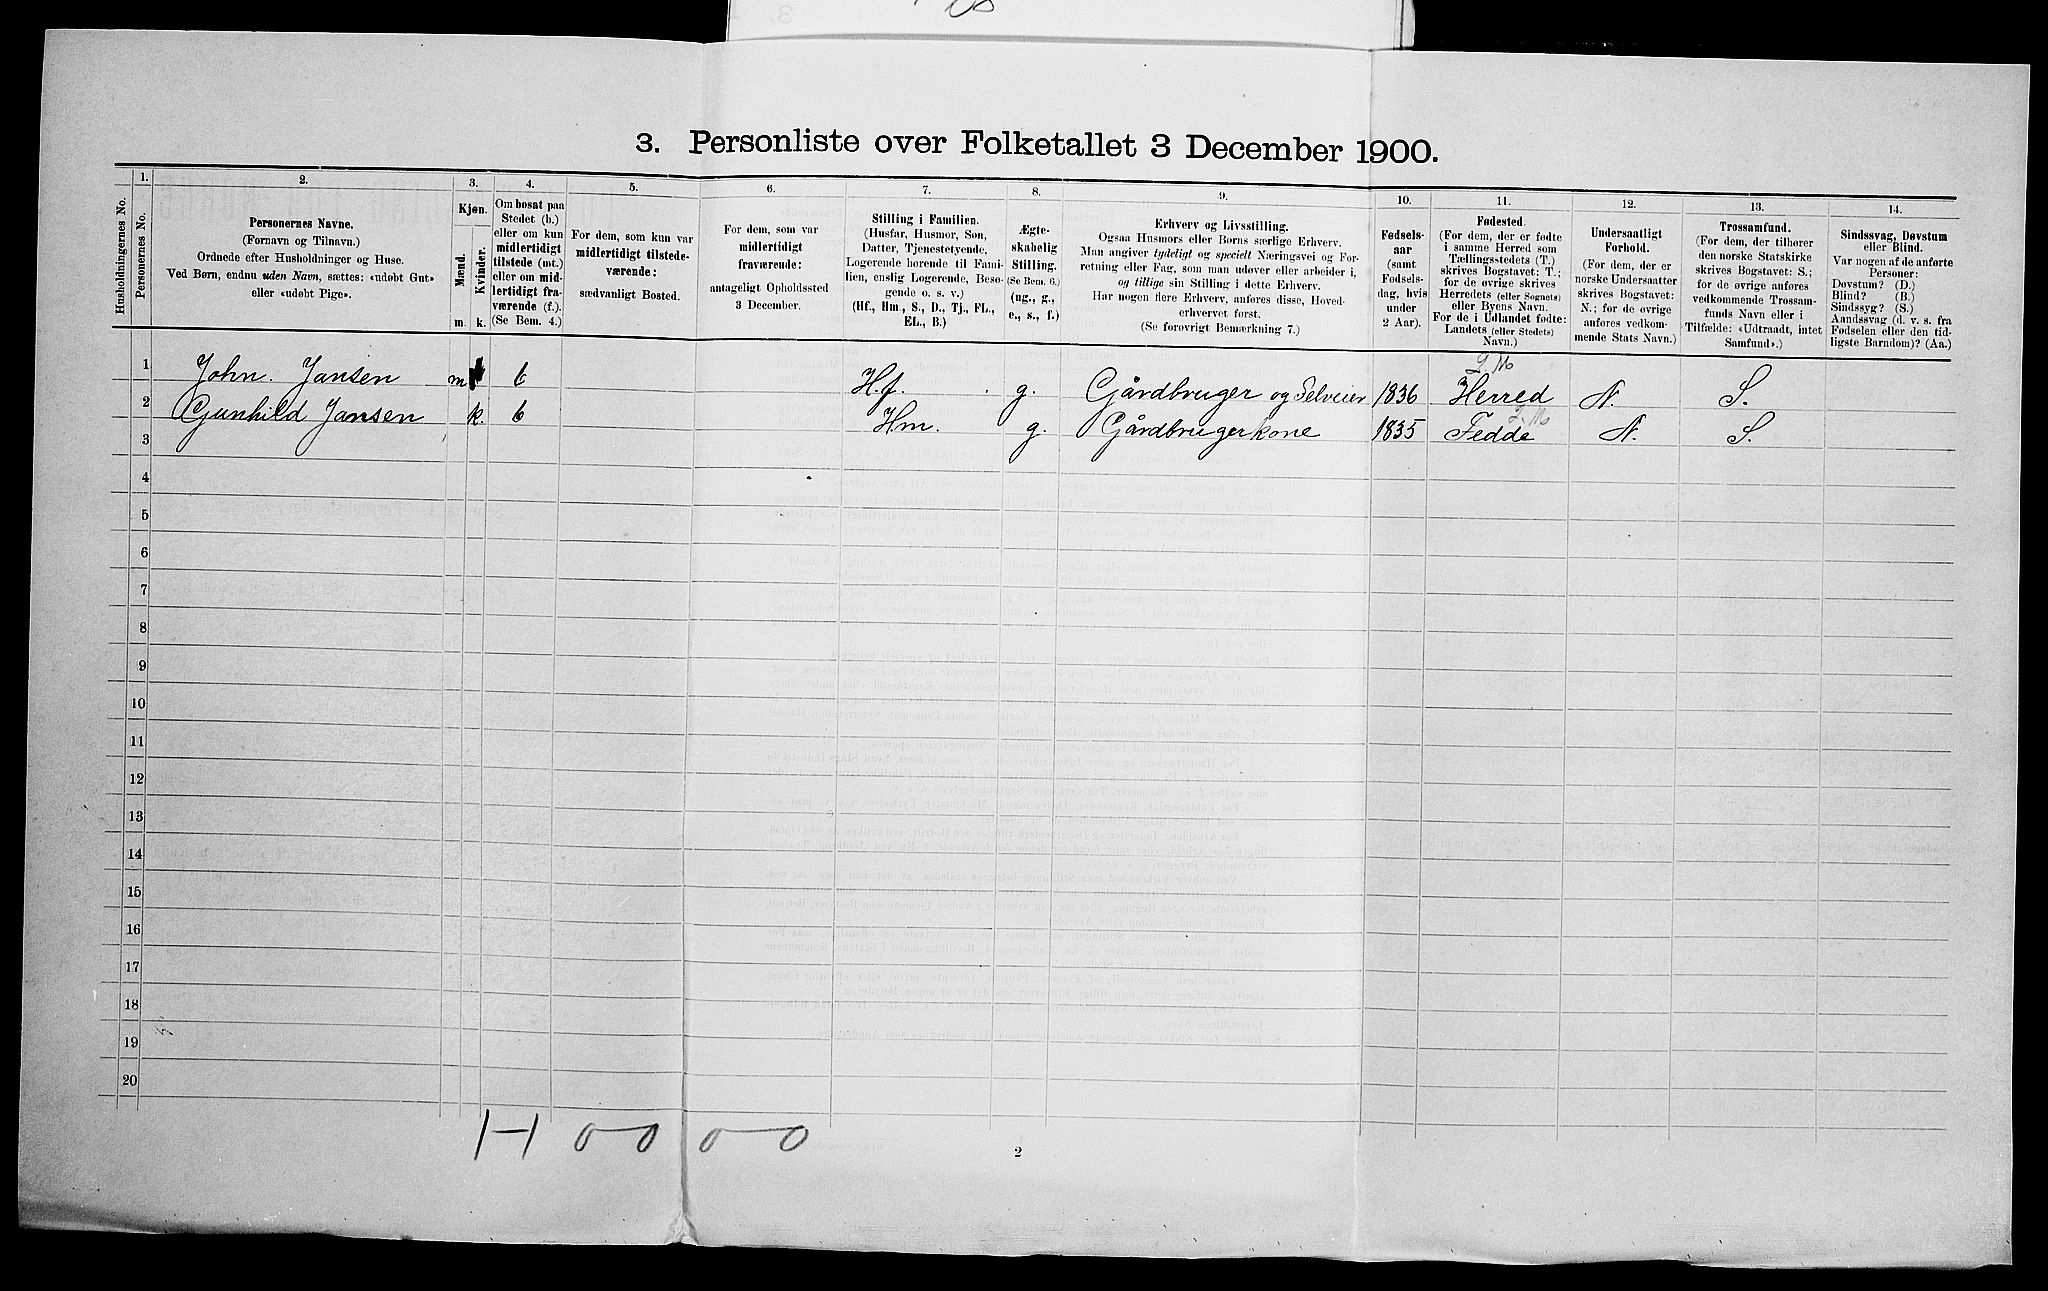 3. Personliste over Folketallet 3 December 1900.
Husholdningernes No.
1.
Personernes No.
2.
Personernes Navne.
(Fornavn og Tilnavn.)
Ordnede efter Husholdninger og Huse.
Ved Børn, endnu uden Navn, sættes: «udøbt Gut»
eller «udøbt Pige».
3.
Kjøn.
Mænd.
Kvinder.
m. k.
4.
Om bosat paa
Stedet (b.)
eller om kun
midlertidigt
tilstede (mt.)
eller om mid-
lertidigt fra-
værende (f.)
(Se Bem. 4.)
5.
For dem, som kun var
midlertidigt tilstede-
værende:
sædvanligt Bosted.
6.
For dem, som var
midlertidigt
fraværende:
antageligt Opholdssted
3 December.
7.
Stilling i Familien.
(Husfar, Husmor, Søn,
Datter, Tjenestetyende,
Logerende hørende til Fami-
lien, enslig Logerende, Besø-
gende o. s. v.)
(Hf., Hm., S., D., Tj., FL.,
EL., B.)
8.
Ægte-
skabelig
Stilling.
(Se Bem. 6.)
(ug., g.,
e., s., f.)
9.
Erhverv og Livsstilling.
Ogsaa Husmors eller Børns særlige Erhverv.
Man angiver tydeligt og specielt Næringsvei og For-
retning eller Fag, som man udøver eller arbeider i,
og tillige sin Stilling i dette Erhverv.
Har nogen flere Erhverv, anføres disse, Hoved-
erhvervet først.
(Se forøvrigt Bemærkning 7.)
10.
Fødsels-
aar
(samt
Fødsels-
dag, hvis
under
2 Aar).
11.
Fødested.
(For dem, der er fødte
i samme Herred som
Tællingsstedets (T.)
skrives Bogstavet: T.;
for de øvrige skrives
Herredets (eller Sognets)
eller Byens Navn.
For de i Udlandet fødte:
Landets (eller Stedets)
Navn.)
12.
Undersaatligt
Forhold.
(For dem, der er
norske Undersaatter
skrives Bogstavet:
N.; for de øvrige
anføres vedkom-
mende Stats Navn.)
13.
Trossamfund.
(For dem, der tilhører
den norske Statskirke
skrives Bogstavet: S.;
for de øvrige anføres
vedkommende Trossam-
funds Navn eller i
Tilfælde: «Udtraadt, intet
Samfund».)
14.
Sindssvag, Døvstum
eller Blind.
Var nogen af de anførte
Personer:
Døvstum? (D.)
Blind? (B.)
Sindssyg? (S.)
Aandssvag (d. v. s. fra
Fødselen eller den tid-
ligste Barndom)? (Aa.)
1 John. Jansen m b Hf. g. Gårdbruger og Selveier 1836 Herred N. S.
2 Gunhild Jansen k. b Hm. g. Gårdbrugerkone 1835 Fedde N. S.
3
4
5
6
7
8
9
10
11
12
13
14
15
16
17
18
19
20
2